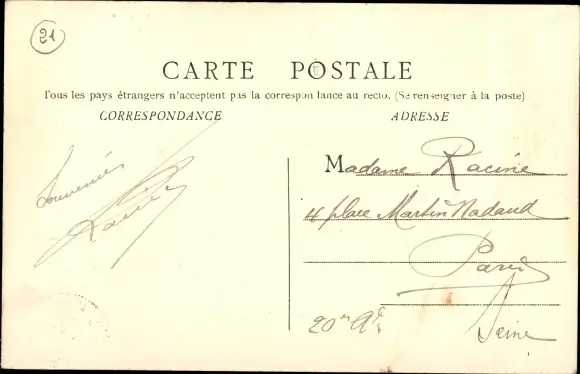 21
CARTE POSTALE
Tous les pays étrangers n'acceptent pas la correspondance au recto. (Se renseigner à la poste)
CORRESPONDANCE
ADRESSE
Souvenirs
Racine
Madame Racine
4 place Martin Nadaud
Paris
20me At.
Seine